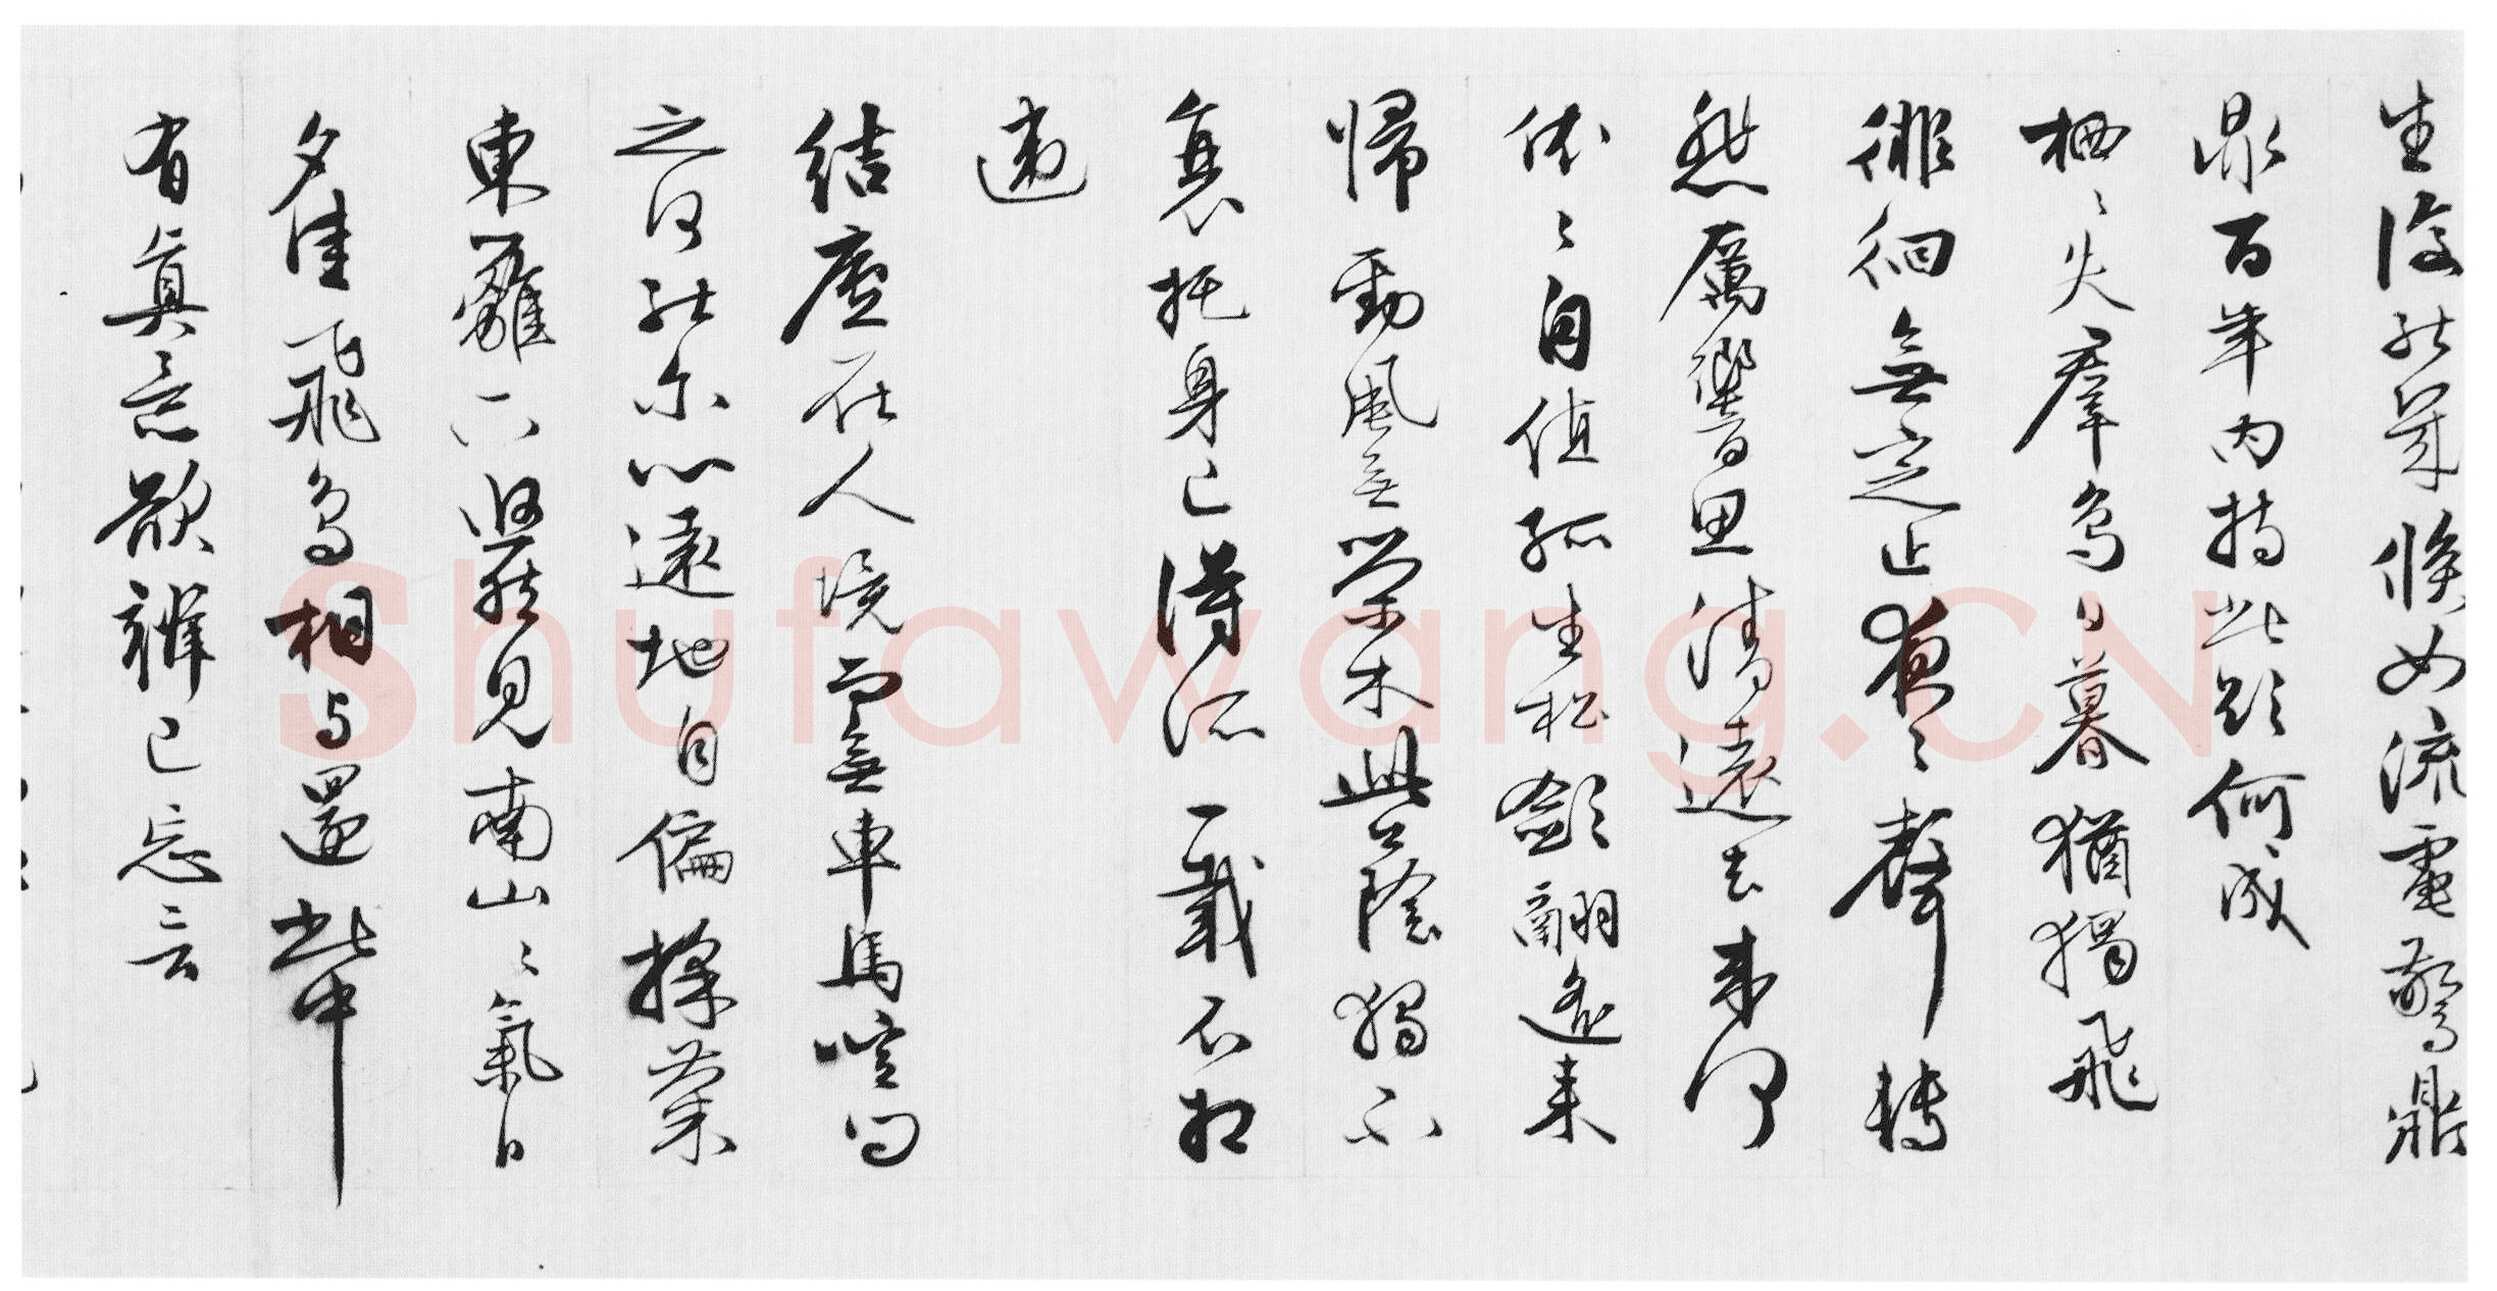 生復能幾倏如流電驚鼎
鼎百年内持此欲何成
栖〻失羣鳥日暮猶獨飛
徘徊無定止夜〻聲轉
悲厲響思清遠去来何
依〻自值孤生松斂翮遙来
歸勁風無榮木此蔭獨不
衰托身已得所千載不相
違
結廬在人境而無車馬喧問
之何能尔心遠地自偏採菊
東籬下悠然見南山〻氣日
夕佳飛鳥相与還此中
有真意欲辨已忘言
Shufawang.CN